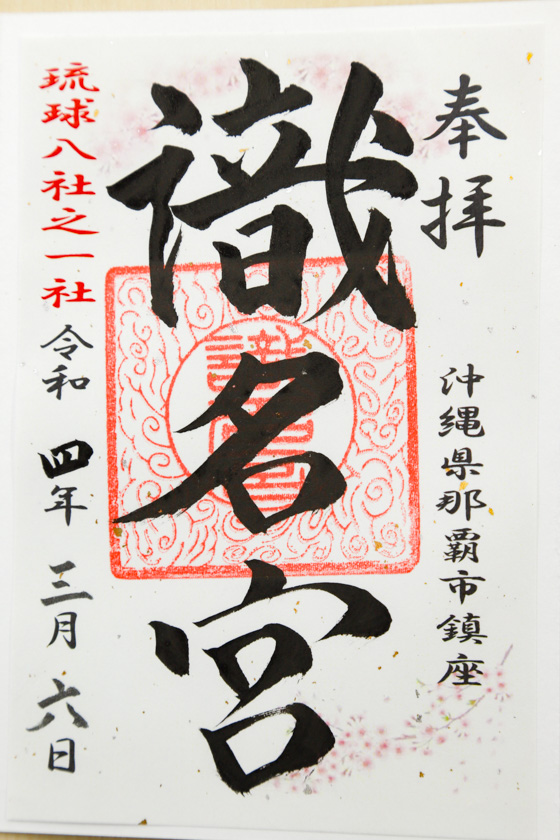 奉拝
沖縄県那覇市鎮座
識名宮
琉球八社之一社
令和 四年 三月 六日